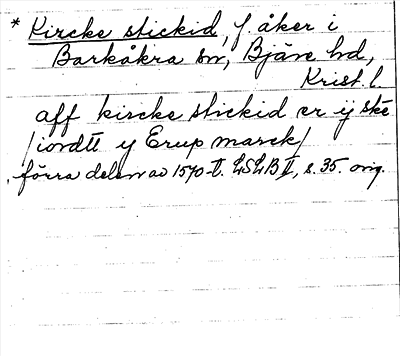 * Kircke stickid, f. åker i
Barkåkra sn, Bjäre hd,
Krist. l.
aff kircke stickid er ij ske
/iordtt y Erup marck/
förra delen av 1570-t. LSLB II, s. 35. orig.